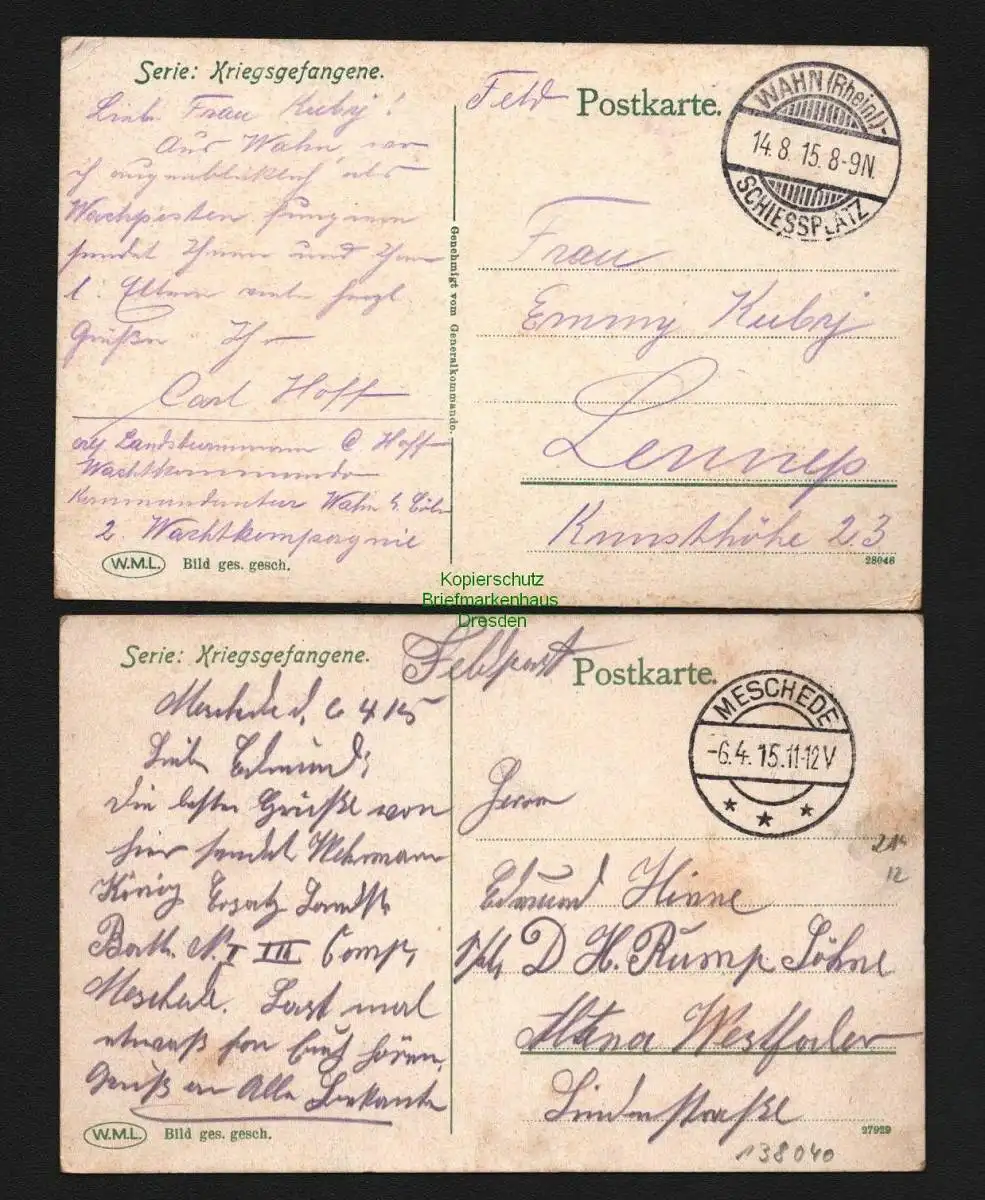 Serie: Kriegsgefangene.
Feld Postkarte.
WAHN (Rheinl.)-
14.8.15.8-9N.
SCHIESSPLATZ
Liebe Frau Kubij!
Aus Wahn, wo
ich augenblicklich als
Wachposten fungiere
sendet Ihnen und Ihren
l. Eltern viele herzl
Grüße Ihr
Carl Hoff
Landsturmmann C Hoff
Wachtkommando
Kommandantur Wahn b. Cöln
2. Wachtkompagnie
Genehmigt vom Generalkommando.
Frau
Emmy Kubij
Lennep
Kunsthöhe 23
W.M.L. Bild ges. gesch.
28046
Kopierschutz
Briefmarkenhaus
Dresden
Serie: Kriegsgefangene.
Feldpost Postkarte.
MESCHEDE
-6.4.15.11-12V
Meschede d. 6 4 15
Liebe Edmund;
Die besten Grüße von
hier sendet Wehrmann
König Ersatz Landst.
Batl. N. I III Comp,
Meschede. Last mal
etwaß fon Euch hören,
Gruß an Alle Bekante
Herrn
Edmund Hinne
D. H. Rump Söhne
Altena Westfalen
Lindenstraße
12
W.M.L. Bild ges. gesch.
27929
138040